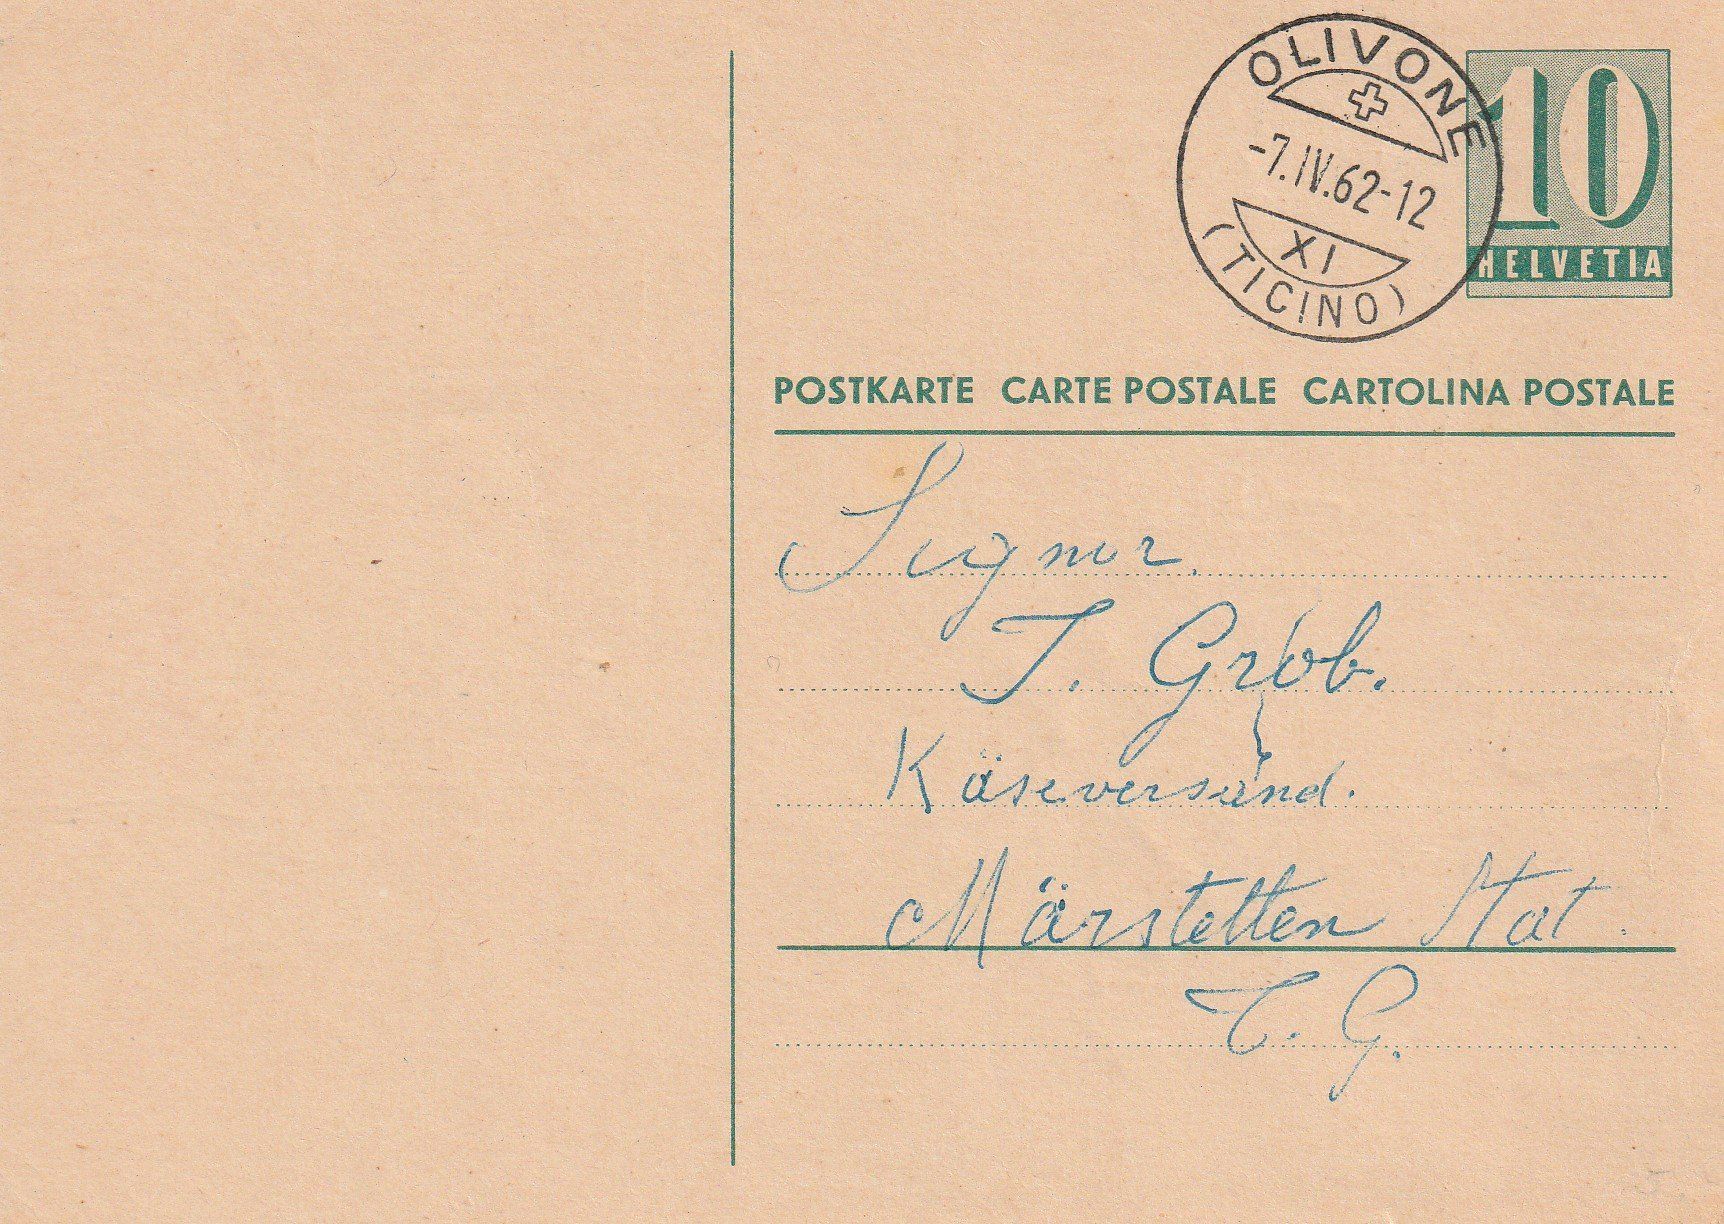 OLIVONE
-7.IV.62-12
XI
(TICINO)
10
HELVETIA
POSTKARTE CARTE POSTALE CARTOLINA POSTALE
Signor.
J. Grob.
Käseversand.
Märstetten Stat.
T. G.